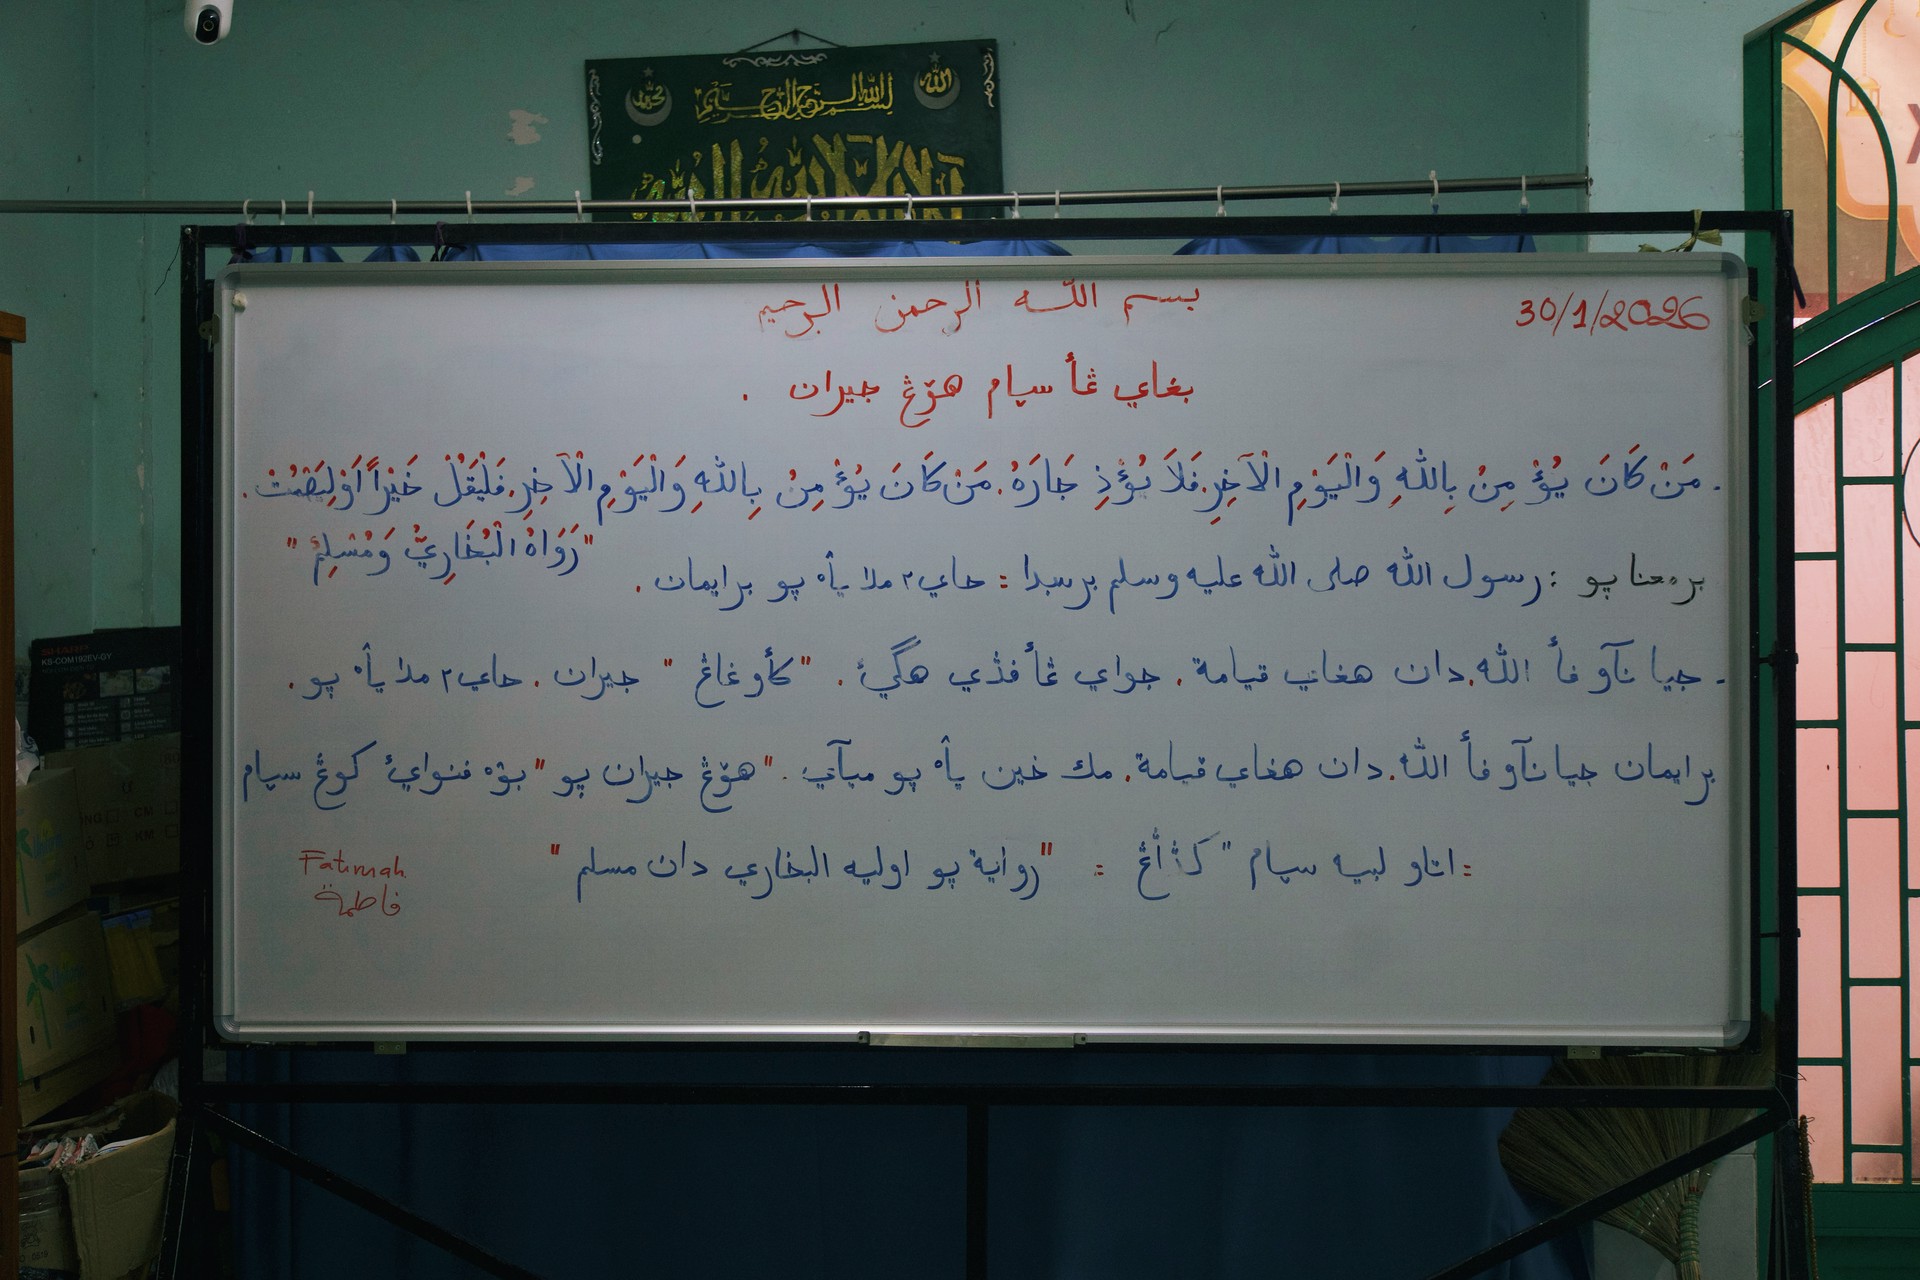 بسم الله الرحمن الرحيم
30/1/2026
بغاي ڠأ سيام هوّڠ جيران .
. مَنْ كَانَ يُؤْمِنُ بِاللهِ وَالْيَوْمِ الْآخِرِ. فَلَا يُؤْذِ جَارَهُ. مَنْ كَانَ يُؤْمِنُ بِاللهِ وَالْيَوْمِ الْآخِرِ. فَلْيَقُلْ خَيْراً اَوْلِيَصْمُتْ .
"رَوَاهُ الْبُخَارِيُّ وَمُسْلِمٌ"
برمعنا ڤو : رسول الله صلى الله عليه وسلم برسبدا : حاي٢ ملا يأه ڤو برايمان .
. جيا نآو فأ الله. دان هغاي قيامة. جواي ڠأ فڎي هڬيء . "كأو غاڠ" جيران . حاي٢ ملا يأه ڤو .
برايمان جيا نآو فأ الله. دان هغاي قيامة. مك خين يأه ڤو مبآي . "هوّڠ جيران ڤو" بوّه فنواي كوڠ سيام
: اتاو لبيه سيام " : "رواية ڤو اوليه البخاري دان مسلم"
Fatimah
فاطمة
SHARP
KS-COM192EV-GY
CM
KM